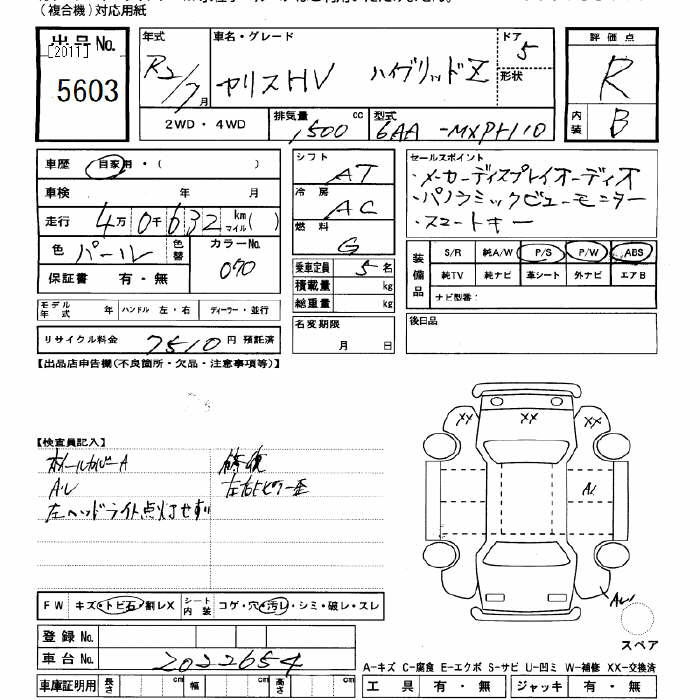 (複合機)対応用紙
出品No.
[2011]
5603
年式
R2/7月
車名・グレード
ヤリスHV ハイブリッドZ
ドア 5
形状
評価点
R
内装 B
2WD・4WD
排気量 cc
1500
型式
6AA-MXPH10
車歴 自家用・( )
車検 年 月
走行 4万0千632 km マイル( )
色 パール 色替
カラーNo.
070
保証書 有・無
シフト AT
冷房 AC
燃料 G
乗車定員 5名
積載量 kg
総重量 kg
名変期限
月 日
セールスポイント
・メーカーディスプレイオーディオ
・パノラミックビューモニター
・スマートキー
装備品
S/R 純A/W P/S P/W ABS
純TV 純ナビ 革シート 外ナビ エアB
ナビ型番:
後日品
モデル年式 年 ハンドル 左・右 ディーラー・並行
リサイクル料金 7510 円 預託済
【出品店申告欄(不良箇所・欠品・注意事項等)】
【検査員記入】
ホイールカバーA
A・U
左ヘッドライト点灯せず
修復
左右Bピラー歪
XX XX XX
FW キズ・トビ石・割レX シート内装 コゲ・穴・汚レ・シミ・破レ・スレ
スペア
登録No.
車台No. 2022654
A-キズ C-腐食 E-エクボ S-サビ U-凹ミ W-補修 XX-交換済
車庫証明用 長さ cm 幅 cm 高さ cm
工具 有・無 ジャッキ 有・無